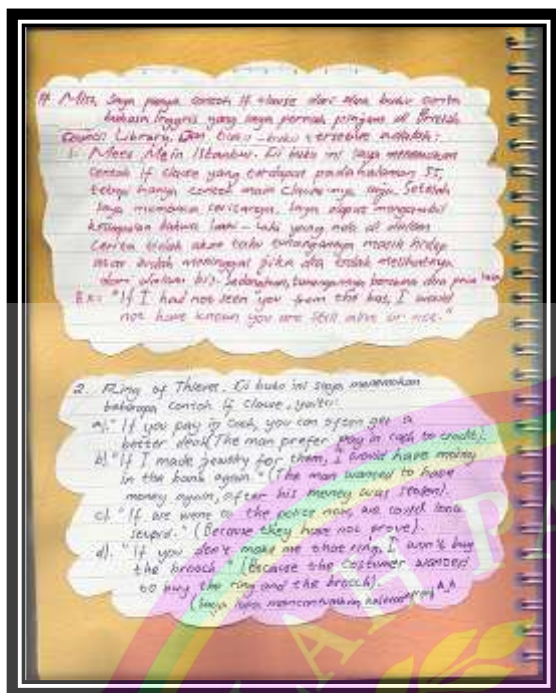 # Miss, saya punya contoh If clause dari dua buku cerita
bahasa Inggris yang saya pernah pinjam di British
Council Library. Dan buku-buku tersebut adalah:
1. Meet Me in Istanbul. Di buku ini saya menemukan
contoh If clause yang terdapat pada halaman 55,
tetapi hanya contoh main clause-nya saja. Setelah
saya membaca ceritanya, saya dapat mengambil
kesimpulan bahwa laki-laki yang ada di dalam
cerita tidak akan tahu tunangannya masih hidup
atau sudah meninggal jika dia tidak melihatnya
dari dalam bis. Sedangkan, tunangannya bersama dua pria lain.
Ex: "If I had not seen you from the bus, I would
not have known you are still alive or not."
2. Ring of Thieves. Di buku ini saya menemukan
beberapa contoh If clause, yaitu:
a). "If you pay in cash, you can often get a
better deal (The man prefer pay in cash to credit).
b). "If I made jewelry for them, I would have money
in the bank again." (The man wanted to have
money again, after his money was stolen).
c). "If we went to the police now, we could look
stupid." (Because they have not prove).
d). "If you don't make me that ring, I won't buy
the brooch." (Because the costumer wanted
to buy the ring and the brooch).
(saya lupa mencantumkan halamannya) ^_^